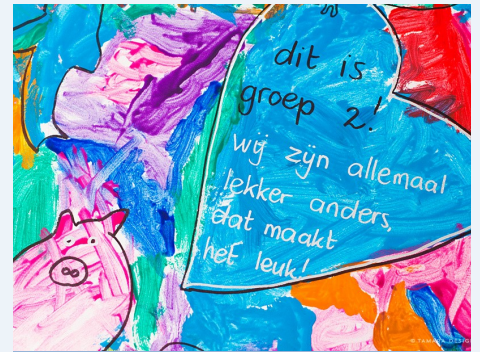 dit is
groep 2!
wij zijn allemaal
lekker anders,
dat maakt
het leuk!
© TAMARA DESIGN